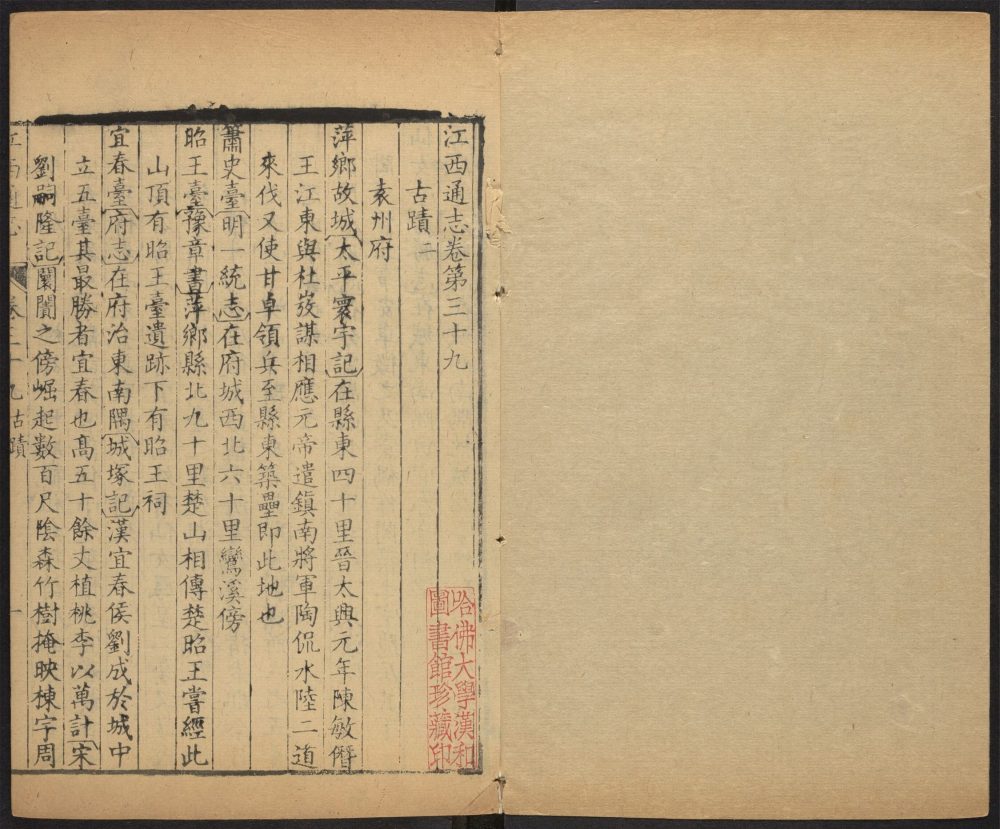 江西通志卷第三十九
古蹟二
袁州府
萍鄉故城太平寰宇記在縣東四十里晉太興元年陳敏僭
王江東與杜弢謀相應元帝遣鎮南將軍陶侃水陸二道
來伐又使甘卓領兵至縣東築壘即此地也
蕭史臺明一統志在府城西北六十里鸞溪傍
昭王臺豫章書萍鄉縣北九十里楚山相傳楚昭王嘗經此
山頂有昭王臺遺跡下有昭王祠
宜春臺府志在府治東南隅城塚記漢宜春侯劉成於城中
立五臺其最勝者宜春也高五十餘丈植桃李以萬計宋
劉嗣隆記闤闠之傍崛起數百尺陰森竹樹掩映棟宇周
江西通志
卷三十九古蹟
一
哈佛大學漢和
圖書館珍藏印